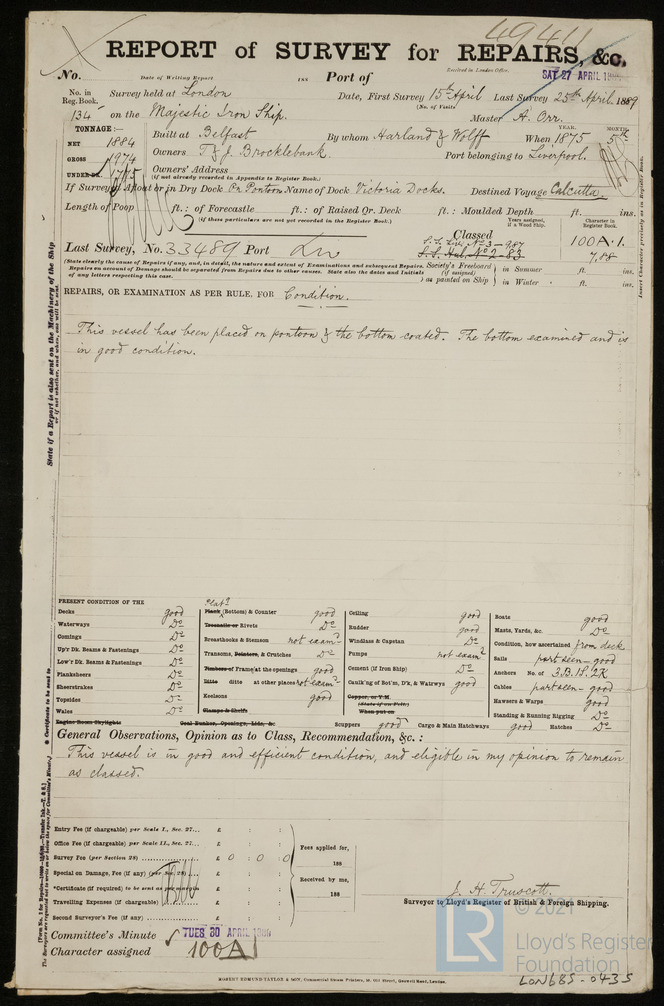 4944
REPORT of SURVEY for REPAIRS, &c.
No. Date of Writing Report 188 Port of Received in London Office SAT 27 APRIL 1889
No. in Reg. Book. Survey held at London Date, First Survey 15th April Last Survey 25th April 1889
(No. of Visits)
134 on the Majestic Iron Ship. Master A. Orr.
TONNAGE:— YEAR. MONTH.
NET 1884 Built at Belfast By whom Harland & Wolff When 1875 5th
GROSS 1974 Owners T & J. Brocklebank. Port belonging to Liverpool.
UNDER DK. 1775 Owners' Address
(if not already recorded in Appendix to Register Book.)
If Surveyed Afloat or in Dry Dock On Pontoon Name of Dock Victoria Docks. Destined Voyage Calcutta
Length of Poop ft.: of Forecastle ft.: of Raised Qr. Deck ft.: Moulded Depth ft. ins.
(if these particulars are not yet recorded in the Register Book.)
Years assigned, if a Wood Ship. Character in Register Book.
Classed
Last Survey, No. 33489 Port Ln S.S. Liv. No 3 - 9.87 100A.1.
7,88
(State clearly the cause of Repairs if any, and, in detail, the nature and extent of Examinations and subsequent Repairs.
Repairs on account of Damage should be separated from Repairs due to other causes. State also the dates and Initials
of any letters respecting this case.
Society's Freeboard (if assigned) as painted on Ship } in Summer ft. ins.
in Winter ft. ins.
REPAIRS, OR EXAMINATION AS PER RULE. FOR Condition.
This vessel has been placed on pontoon & the bottom coated. The bottom examined and is
in good condition.
State if a Report is also sent on the Machinery of the Ship
or if not whether, and when, one will be sent
Insert Character precisely as in Register Book.
PRESENT CONDITION OF THE
Decks good
Waterways Do
Comings Do
Up'r Dk. Beams & Fastenings Do
Low'r Dk. Beams & Fastenings Do
Planksheers Do
Sheerstrakes Do
Topsides Do
Wales Do
Engine Room Skylights
Platg
Plank (Bottom) & Counter good
Treenails or Rivets Do
Breasthooks & Stemson not examd
Transoms, Pointers, & Crutches Do
Timbers of Frame at the openings good
Ditto ditto at other places not examd
Keelsons good
Clamps & Shelfs
Coal Bunker, Openings, Lids, &c.
Scuppers good
Ceiling good
Rudder good
Windlass & Capstan Do
Pumps not examd
Cement (if Iron Ship) Do
Caulk'ng of Bot'm, D'k, & Watrwys good
Copper, or Y.M.
(State if on Felt)
When put on
Cargo & Main Hatchways good
Boats good
Masts, Yards, &c. Do
Condition, how ascertained from deck
Sails part seen - good
Anchors No. of 3.B. 1S. 2K
Cables part seen - good
Hawsers & Warps good
Standing & Running Rigging Do
Hatches Do
General Observations, Opinion as to Class, Recommendation, &c.:
This vessel is in good and efficient condition, and eligible in my opinion to remain
as classed.
Entry Fee (if chargeable) per Scale I., Sec. 27... £ : :
Office Fee (if chargeable) per Scale II., Sec. 27... £ : :
Survey Fee (per Section 28) £ 0 : 0 : 0
Special on Damage, Fee (if any) (per Sec. 28) £ : :
*Certificate (if required) to be sent as per margin £ : :
Travelling Expenses (if chargeable) £ : :
Second Surveyor's Fee (if any) £ : :
Fees applied for,
188
Received by me,
188
* Certificate to be sent to
J. H. Truscott.
Surveyor to Lloyd's Register of British & Foreign Shipping.
Committee's Minute TUES 30 APRIL 1889
Character assigned 100A1
ROBERT EDMUND TAYLOR & SON, Commercial Steam Printers, Goswell Road, London.
LR
© 2021
Lloyd's Register
Foundation
LON685-0435